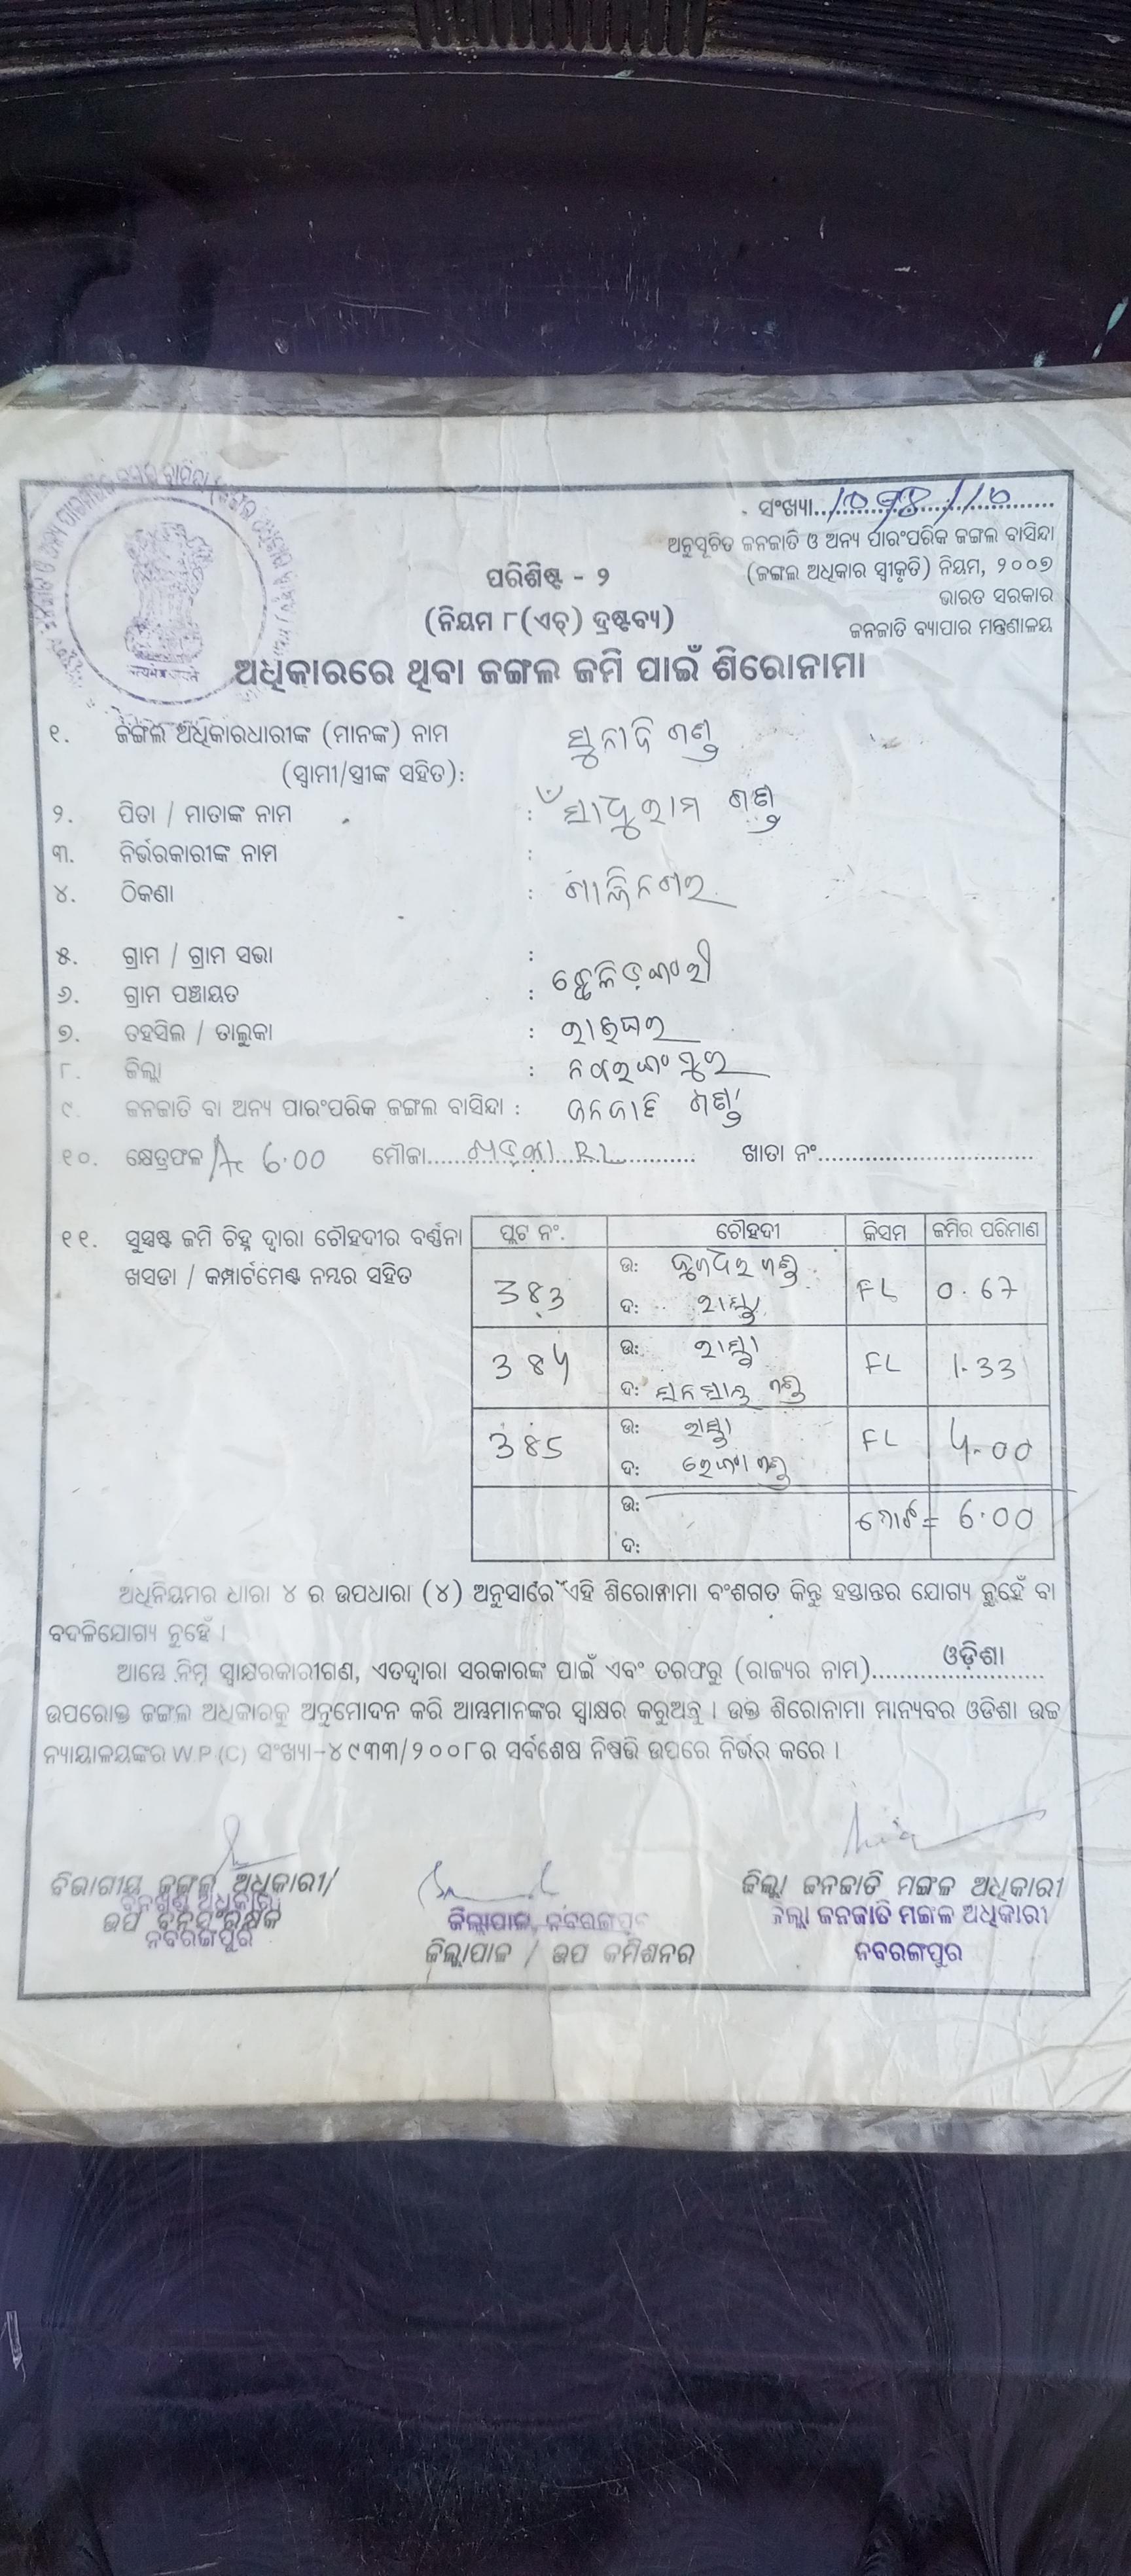 ସଂଖ୍ୟା
ଅନୁସୂଚିତ ଜନଜାତି ଓ ଅନ୍ୟ ପାରଂପରିକ ଜଙ୍ଗଲ ବାସିନ୍ଦା
(ଜଙ୍ଗଲ ଅଧିକାର ସ୍ୱୀକୃତି) ନିୟମ, ୨୦୦୭
ଭାରତ ସରକାର
ଜନଜାତି ବ୍ୟାପାର ମନ୍ତ୍ରଣାଳୟ
ପରିଶିଷ୍ଟ - ୨
(ନିୟମ ୮(ଏଚ୍) ଦ୍ରଷ୍ଟବ୍ୟ)
ଅଧିକାରରେ ଥିବା ଜଙ୍ଗଲ ଜମି ପାଇଁ ଶିରୋନାମା
୧. ଜଙ୍ଗଲ ଅଧିକାରଧାରୀଙ୍କ (ମାନଙ୍କ) ନାମ ଗଣ୍ଡ
(ସ୍ୱାମୀ/ସ୍ତ୍ରୀଙ୍କ ସହିତ):
୨. ପିତା / ମାତାଙ୍କ ନାମ : ସାଧୁରାମ ଗଣ୍ଡ
୩. ନିର୍ଭରକାରୀଙ୍କ ନାମ :
୪. ଠିକଣା :
୫. ଗ୍ରାମ / ଗ୍ରାମ ସଭା :
୬. ଗ୍ରାମ ପଞ୍ଚାୟତ :
୭. ତହସିଲ / ତାଲୁକା : ରାଇଘର
୮. ଜିଲ୍ଲା : ନବରଙ୍ଗପୁର
୯. ଜନଜାତି ବା ଅନ୍ୟ ପାରଂପରିକ ଜଙ୍ଗଲ ବାସିନ୍ଦା : ଜନଜାତି ଗଣ୍ଡ
୧୦. କ୍ଷେତ୍ରଫଳ Ac 6.00 ମୌଜା RL ଖାତା ନଂ
୧୧. ସୁସ୍ପଷ୍ଟ ଜମି ଚିହ୍ନ ଦ୍ୱାରା ଚୌହଦୀର ବର୍ଣ୍ଣନା
ଖସଡା / କମ୍ପାର୍ଟମେଣ୍ଟ ନମ୍ବର ସହିତ
ପ୍ଲଟ ନଂ. ଚୌହଦୀ କିସମ ଜମିର ପରିମାଣ
383 ଉ: ଗଣ୍ଡ FL 0.67
ଦ: ରାସ୍ତା
384 ଉ: ରାସ୍ତା FL 1.33
ଦ: ଗଣ୍ଡ
385 ଉ: ରାସ୍ତା FL 4.00
ଦ: ଗଣ୍ଡ
ଉ: ମୋଟ = 6.00
ଦ:
ଅଧିନିୟମର ଧାରା ୪ ର ଉପଧାରା (୪) ଅନୁସାରେ ଏହି ଶିରୋନାମା ବଂଶଗତ କିନ୍ତୁ ହସ୍ତାନ୍ତର ଯୋଗ୍ୟ ନୁହେଁ ବା
ବଦଳିଯୋଗ୍ୟ ନୁହେଁ ।
ଆମ୍ଭେ ନିମ୍ନ ସ୍ୱାକ୍ଷରକାରୀଗଣ, ଏତଦ୍ୱାରା ସରକାରଙ୍କ ପାଇଁ ଏବଂ ତରଫରୁ (ରାଜ୍ୟର ନାମ) ଓଡ଼ିଶା
ଉପରୋକ୍ତ ଜଙ୍ଗଲ ଅଧିକାରକୁ ଅନୁମୋଦନ କରି ଆମ୍ଭମାନଙ୍କର ସ୍ୱାକ୍ଷର କରୁଅଛୁ । ଉକ୍ତ ଶିରୋନାମା ମାନ୍ୟବର ଓଡିଶା ଉଚ୍ଚ
ନ୍ୟାୟାଳୟଙ୍କର W.P.(C) ସଂଖ୍ୟା-୪୯୩୩/୨୦୦୮ର ସର୍ବଶେଷ ନିଷ୍ପତ୍ତି ଉପରେ ନିର୍ଭର କରେ ।
ବିଭାଗୀୟ ଜଙ୍ଗଲ ଅଧିକାରୀ/
ବନଖଣ୍ଡ ଅଧିକାରୀ
ଉପ ବନସଂରକ୍ଷକ
ନବରଙ୍ଗପୁର
ଜିଲ୍ଲାପାଳ, ନବରଙ୍ଗପୁର
ଜିଲ୍ଲାପାଳ / ଉପ କମିଶନର
ଜିଲ୍ଲା ଜନଜାତି ମଙ୍ଗଳ ଅଧିକାରୀ
ଜିଲ୍ଲା ଜନଜାତି ମଙ୍ଗଳ ଅଧିକାରୀ
ନବରଙ୍ଗପୁର